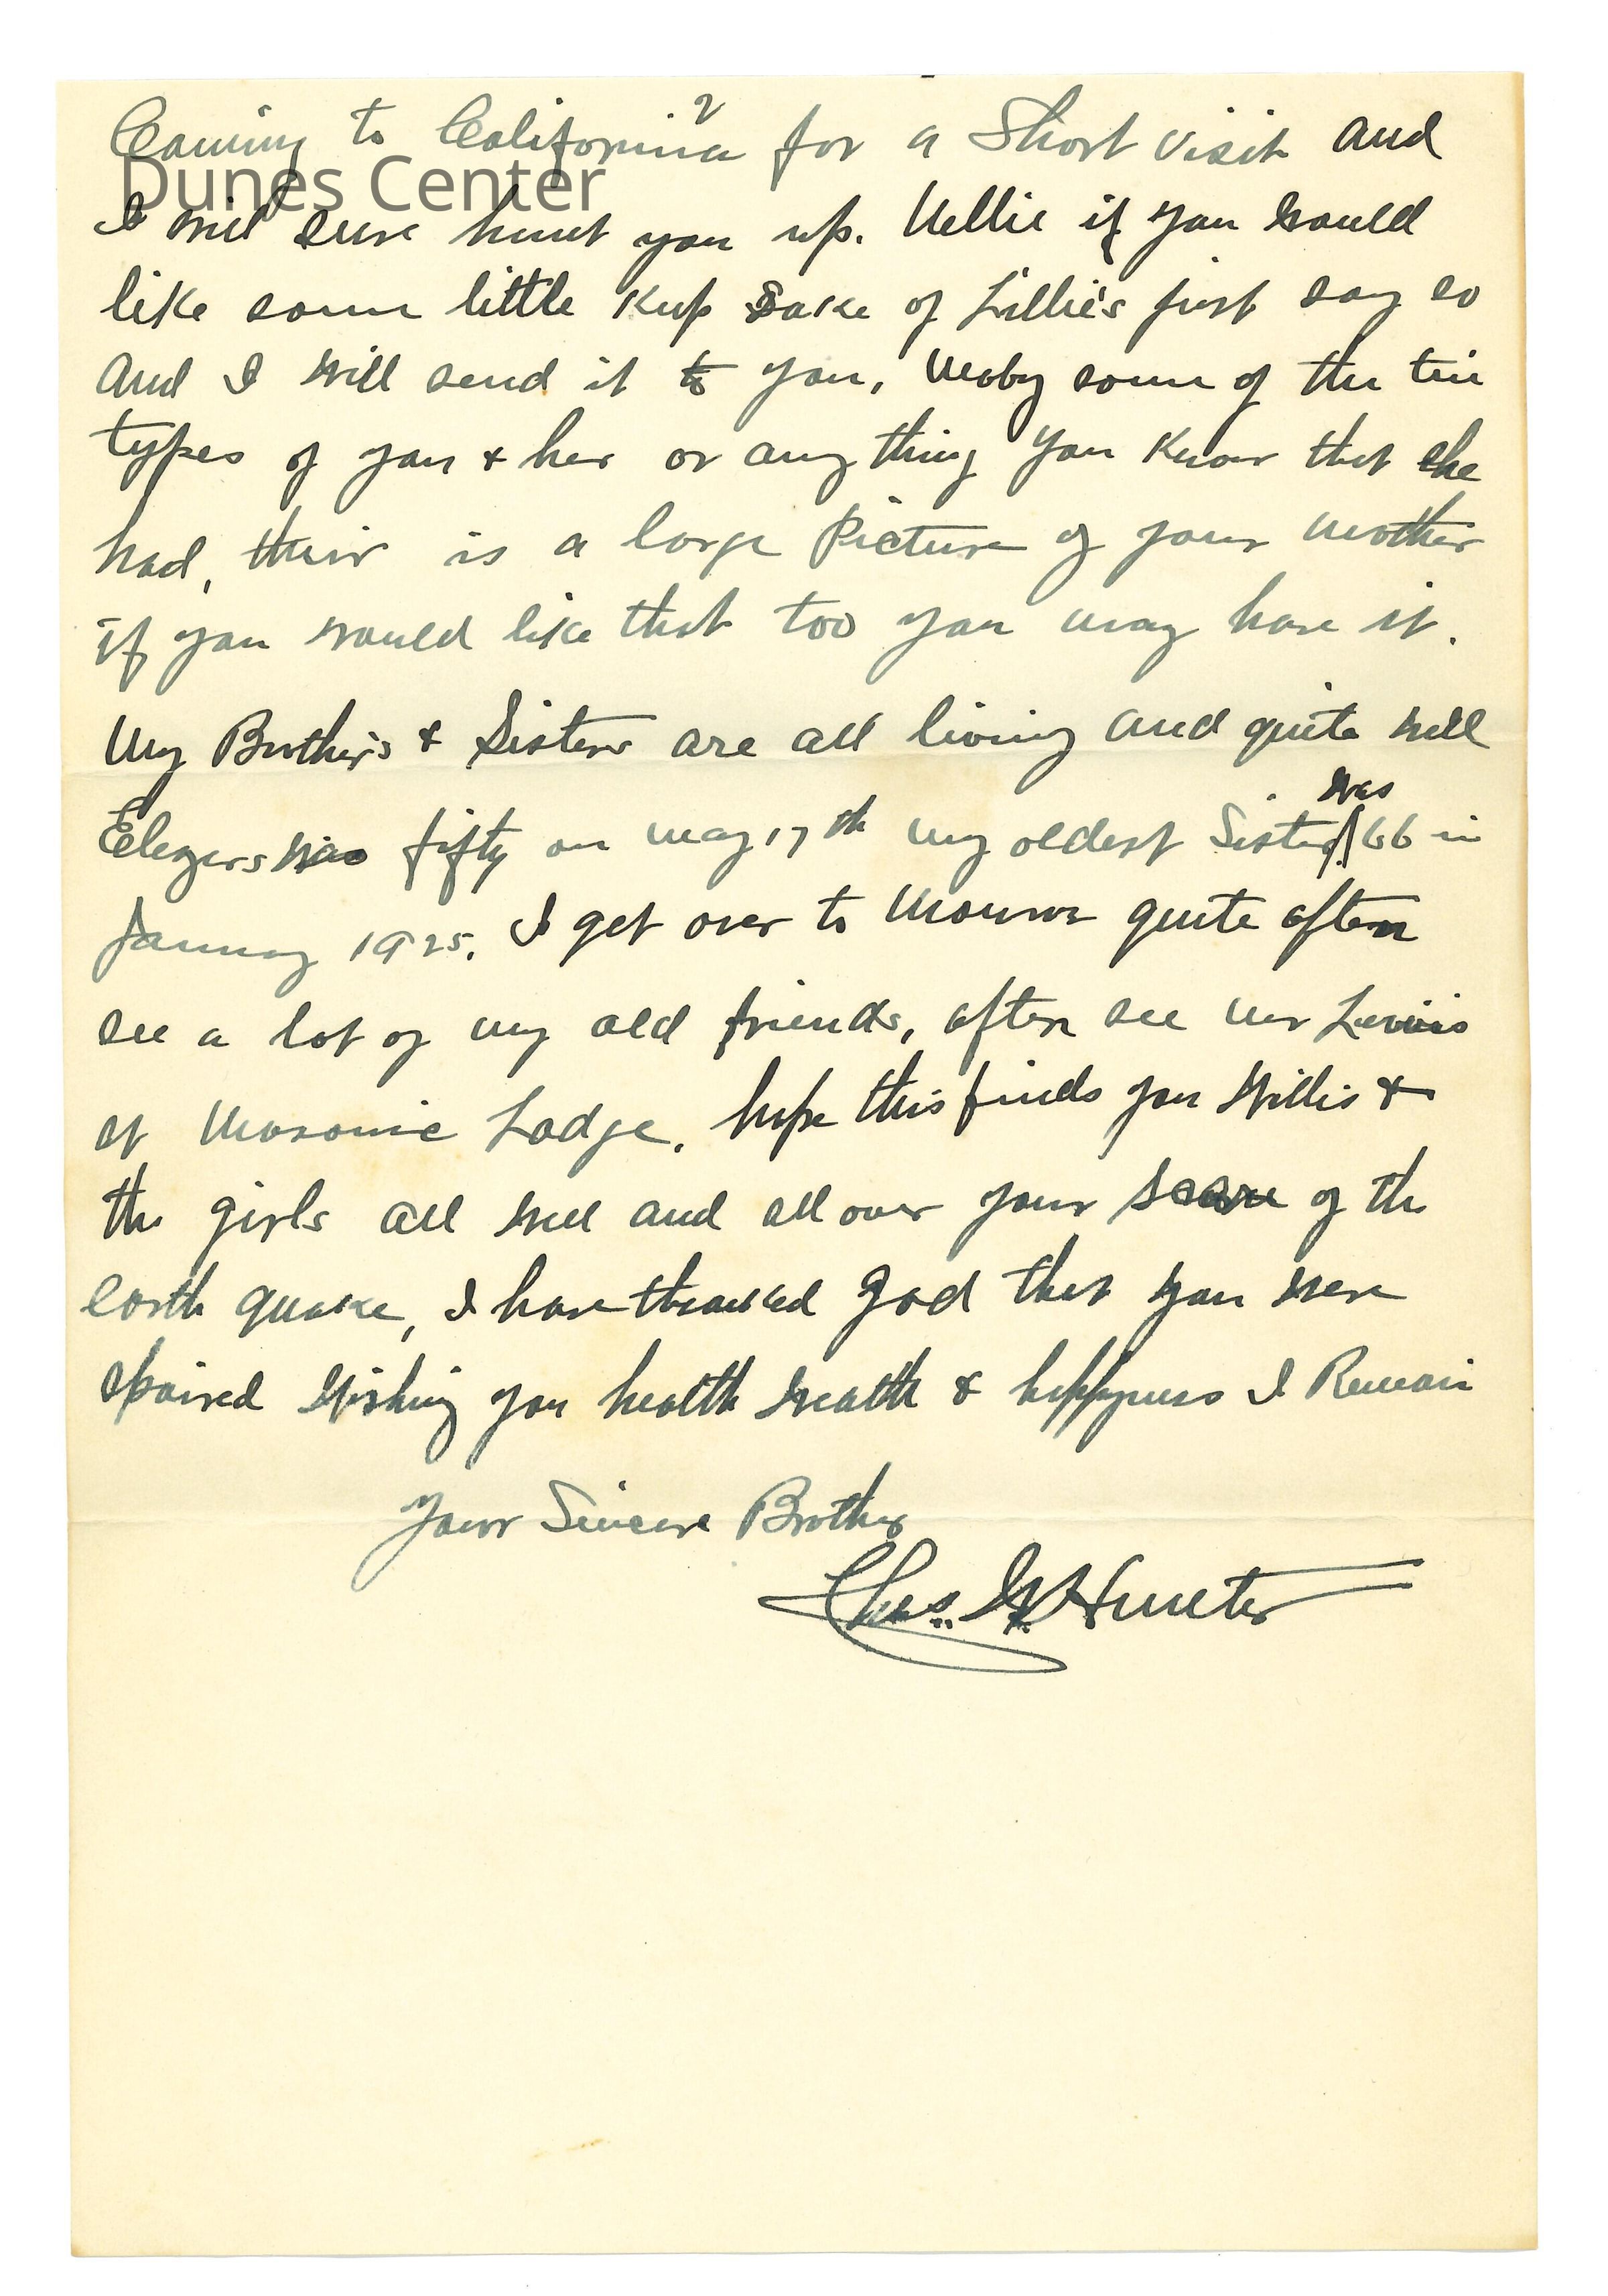 2
Coming to California for a Short visit and
Dunes Center
I will sure hunt you up. Nellie if you would
like some little Keep Sake of Lillie's just say so
and I will send it to you, Maby some of the tin
types of you & her or any thing you Know that she
had, their is a large Picture of your Mother
if you would like that too you may have it.
My Brother's & Sisters are all living and quite well
was
fifty on May 17th my oldest Sister was 66 in
January 1925. I get over to Monroe quite often
see a lot of my old friends, often see Mr Lewis
at Masonic Lodge. hope this finds you Willis &
the girls all well and all over your scare of the
earth quake, I have thanked God that you were
spaired Wishing you health wealth & happyness I Remain
Your Sincere Brother
Chas. W. Hunter